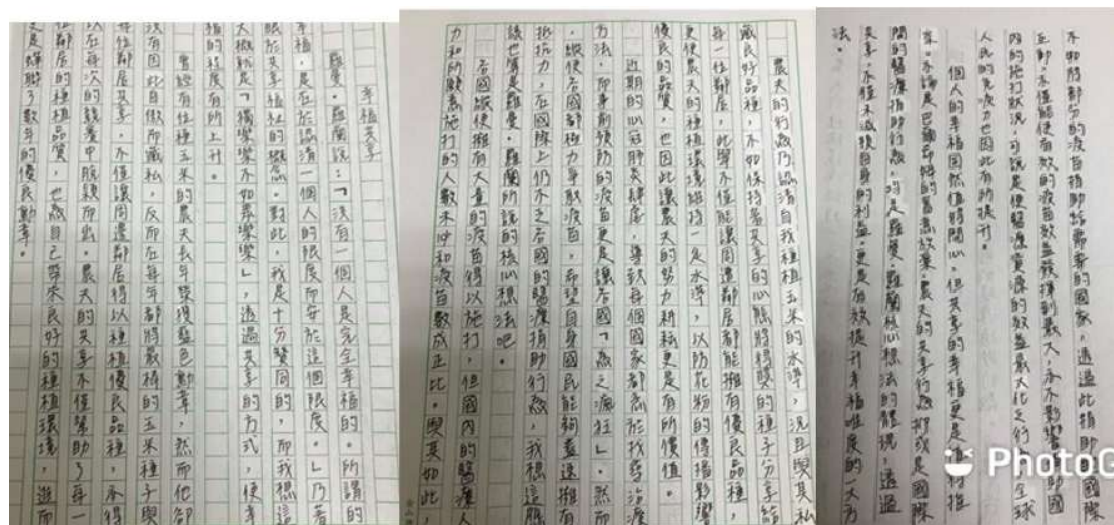 幸福共享
羅曼．羅蘭說：「沒有一個人是完全幸福的。所謂的
幸福，是在於認清一個人的限度而安於這個限度。」乃著
眼於共享福祉的概念。對此，我是十分贊同的，而我想這
大概就是「獨樂樂不如眾樂樂」，透過共享的方式，使幸
福的程度有所上升。
曾經有位種玉米的農夫長年榮獲藍色勳章，然而他卻
沒有因此自傲而藏私，反而在每年都將最棒的玉米種子與
每位鄰居共享，不僅讓周邊鄰居得以種植優良品種，亦得
以在每次的競賽中脫穎而出。農夫的共享不僅幫助了每一
位鄰居的種植品質，也為自己帶來良好的種植環境，進而
更是蟬聯了數年的優良勳章。
農夫的行為乃認清自我種植玉米的水準，況且與其私
藏良好品種，不如保持著共享的心態將得獎的種子分享給
每一位鄰居，此舉不僅能讓周遭鄰居都能擁有優良品種，
更使農夫的種植環境維持一定水準，以防花粉的傳播影響
優良的品質，也因此讓農夫的努力耕耘更是有所價值。
近期的新冠肺炎肆虐，導致每個國家都急於找尋治療
方法，而事前預防的疫苗更是讓各國「為之瘋狂」。然而
，縱使各國都極力爭取疫苗，希望自身國民能夠盡速擁有
抵抗力，在國際上仍不乏各國的醫療捐助行為，我想這應
該也算是羅曼．羅蘭所說的核心想法吧。
各國縱使擁有大量的疫苗得以施打，但國內的醫療人
力和所願意施打的人數未必和疫苗數成正比。與其如此，
不如將部分的疫苗捐助給需要的國家，透過此捐助
互動，不僅能使有效的疫苗效益發揮到最大，亦不影響國
內的施打狀況，可說是使醫療資源的效益最大化之行，全球
人民的免疫力也因此有所提升。
個人的幸福固然值得關心，但共享的幸福更是值得推
崇。不論是農夫的共享行為抑或是國際
間的醫療捐助行為，均是羅曼．羅蘭核心想法的體現，透過
共享，不僅未減損自身的利益，更是有效提升幸福維度的一大方
法。
PhotoG